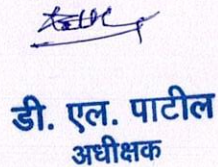 डी. एल. पाटील
अधीक्षक